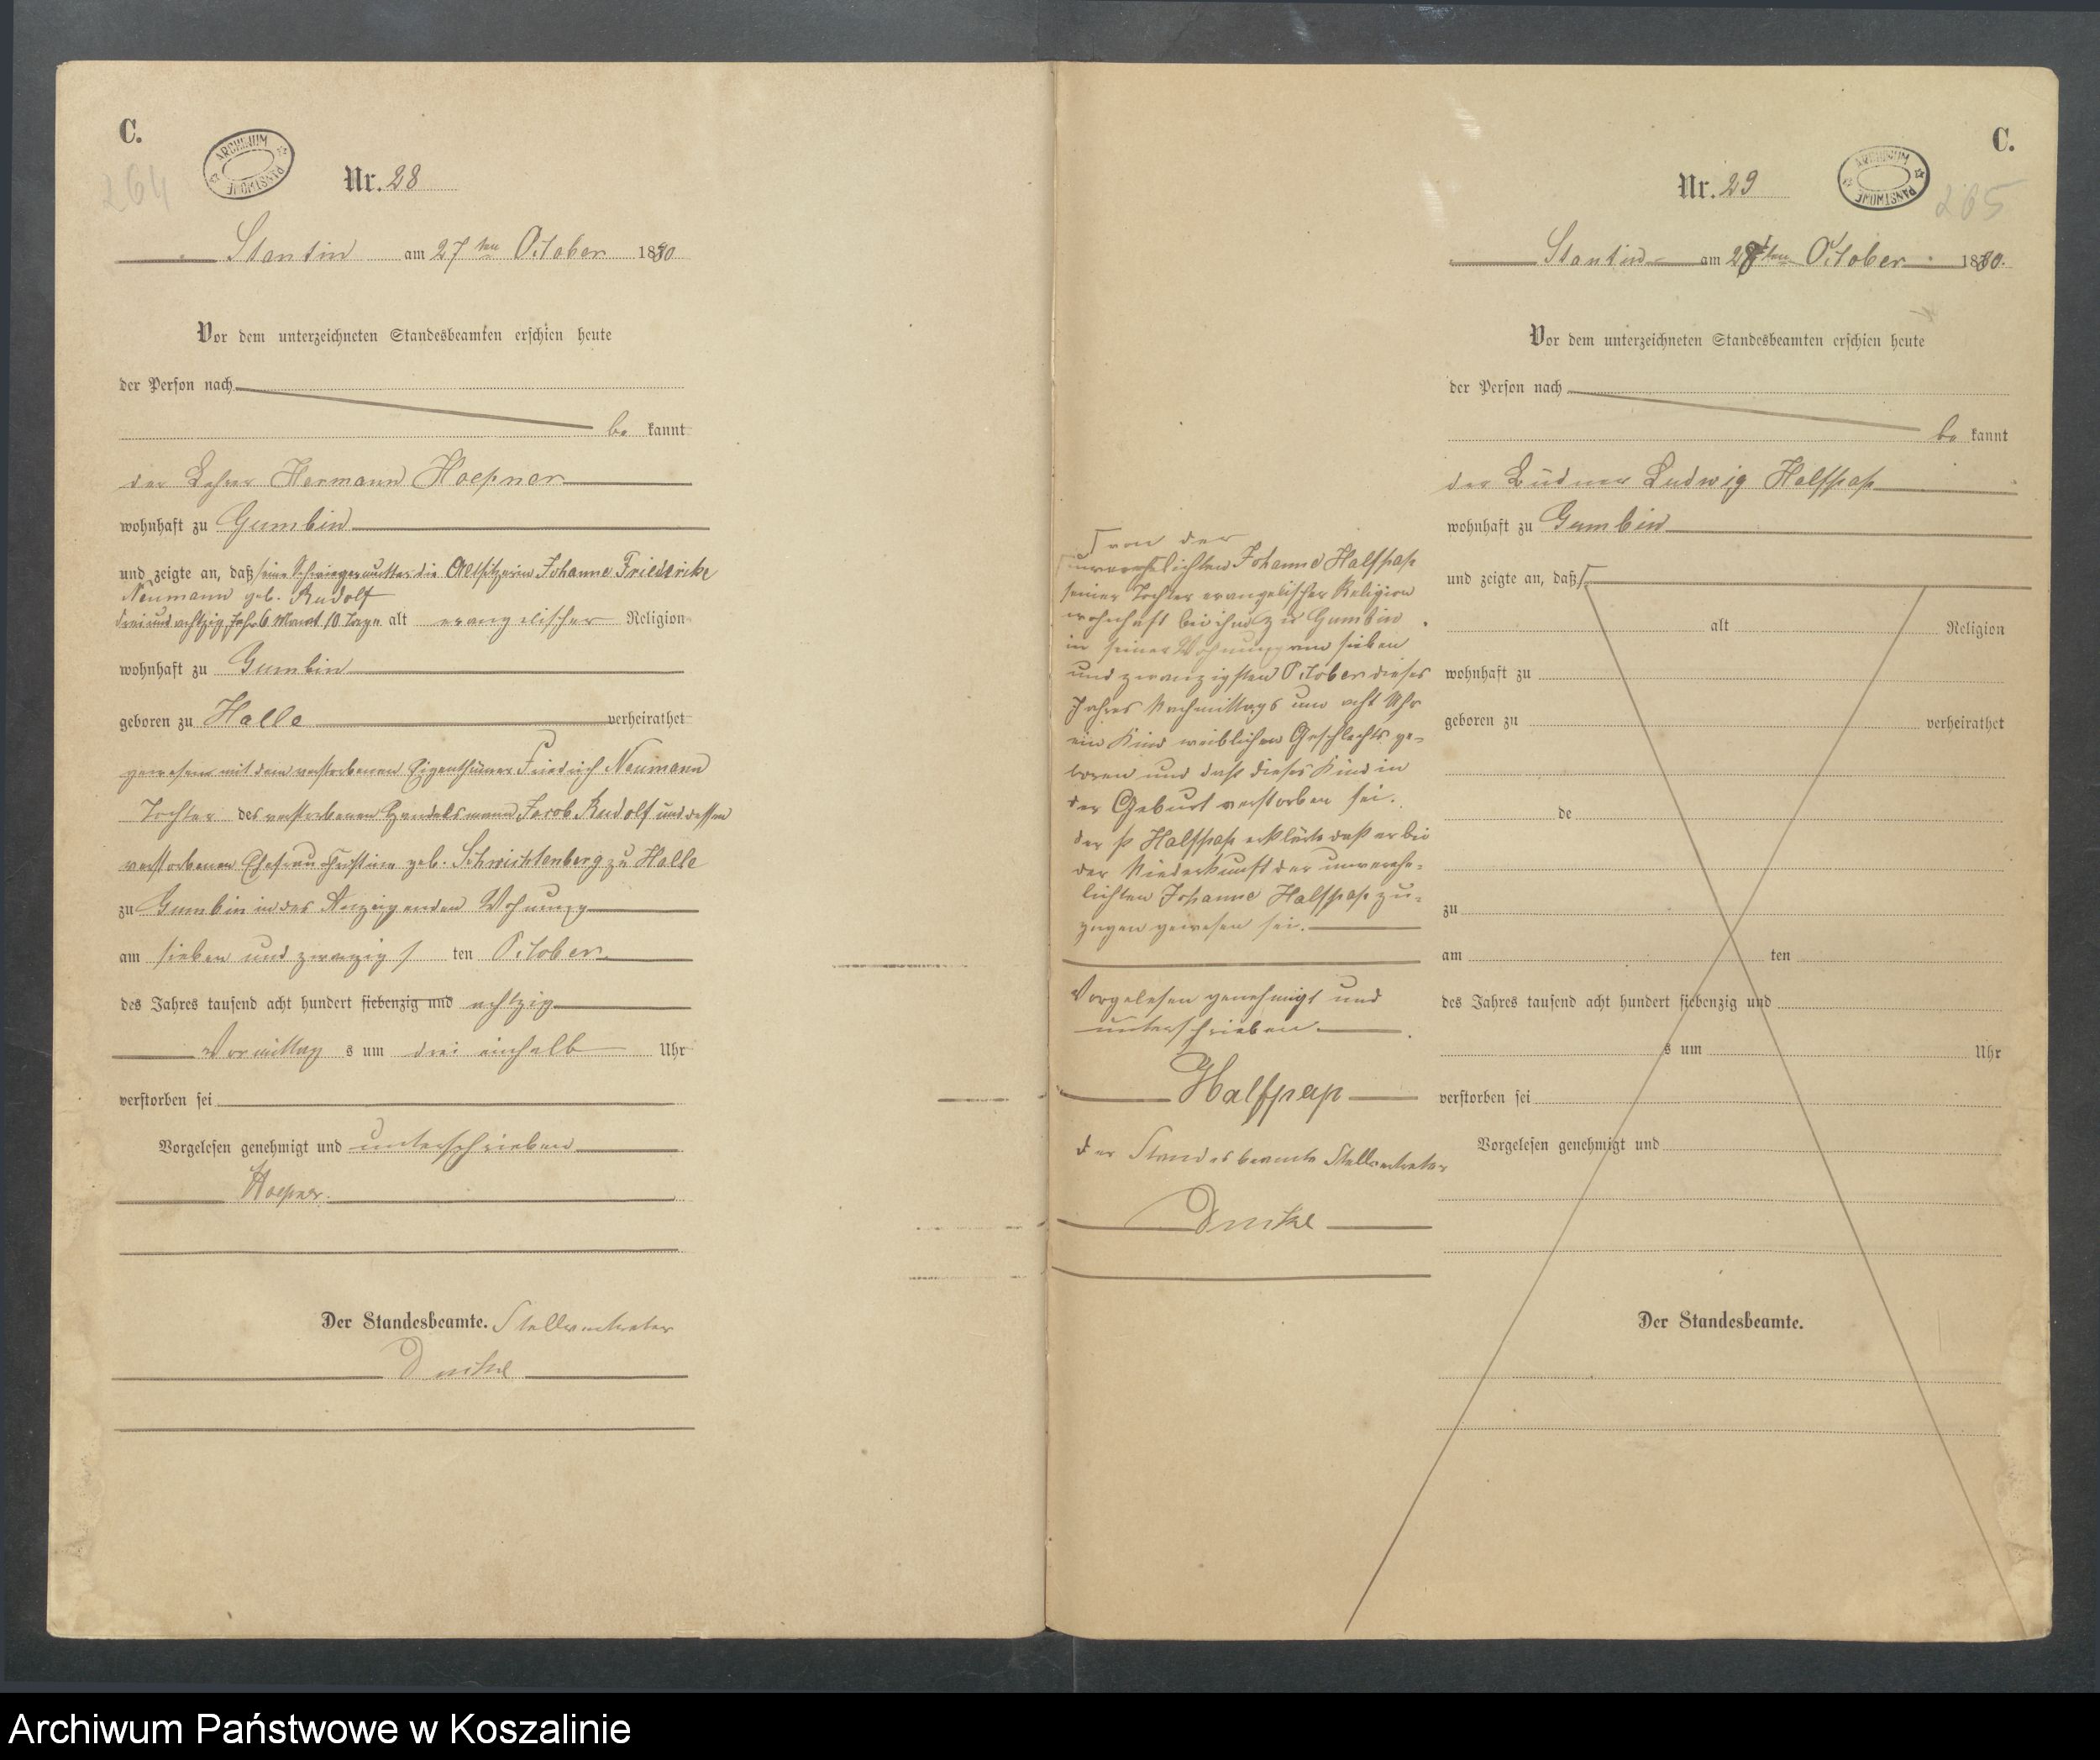 C.
264
ARCHIWUM PAŃSTWOWE
Nr. 28
Stantin am 27ten October 1880
Vor dem unterzeichneten Standesbeamten erschien heute
der Person nach
be kannt
der Lehrer Hermann Hoepner
wohnhaft zu Gumbin
und zeigte an, daß seine Schwiegermutter die Altsitzerin Johanne Friedericke
Neumann geb. Rudolf
drei und achtzig Jahr 6 Monat 10 Tage alt evangelischer Religion
wohnhaft zu Gumbin
geboren zu Halle verheirathet
gewesen mit dem verstorbenen Eigenthümer Friedrich Neumann
Tochter des verstorbenen Handelsmann Jacob Rudolf und dessen
verstorbenen Ehefrau Christine geb. Schwichtenberg zu Halle
zu Gumbin in des Anzeigenden Wohnung
am sieben und zwanzigs ten October
des Jahres tausend acht hundert siebenzig und achtzig
Vormittag s um drei einhalb Uhr
verstorben sei
Vorgelesen genehmigt und unterschrieben
Hoepner.
Der Standesbeamte. Stellvertreter
C.
265
ARCHIWUM PAŃSTWOWE
Nr. 29
Stantin am 28ten October 1880.
Vor dem unterzeichneten Standesbeamten erschien heute
der Person nach
be kannt
der Büdner Ludwig Halfpap
wohnhaft zu Gumbin
und zeigte an, daß
alt Religion
wohnhaft zu
geboren zu verheirathet
de
zu
am ten
des Jahres tausend acht hundert siebenzig und
s um Uhr
verstorben sei
Vorgelesen genehmigt und
Der Standesbeamte.
von der
unverehelichten Johanne Halfpap
seiner Tochter evangelischer Religion
wohnhaft bei ihm zu Gumbin
in seiner Wohnung am sieben
und zwanzigsten October dieses
Jahres Nachmittags um acht Uhr
ein Kind weiblichen Geschlechts ge-
boren und daß dieses Kind in
der Geburt verstorben sei.
der p Halfpap erklärte daß er bei
der Niederkunft der unverehe-
lichten Johanne Halfpap zu-
gegen gewesen sei.
Vorgelesen genehmigt und
unterschrieben
Halfpap
der Standesbeamte Stellvertreter
Archiwum Państwowe w Koszalinie